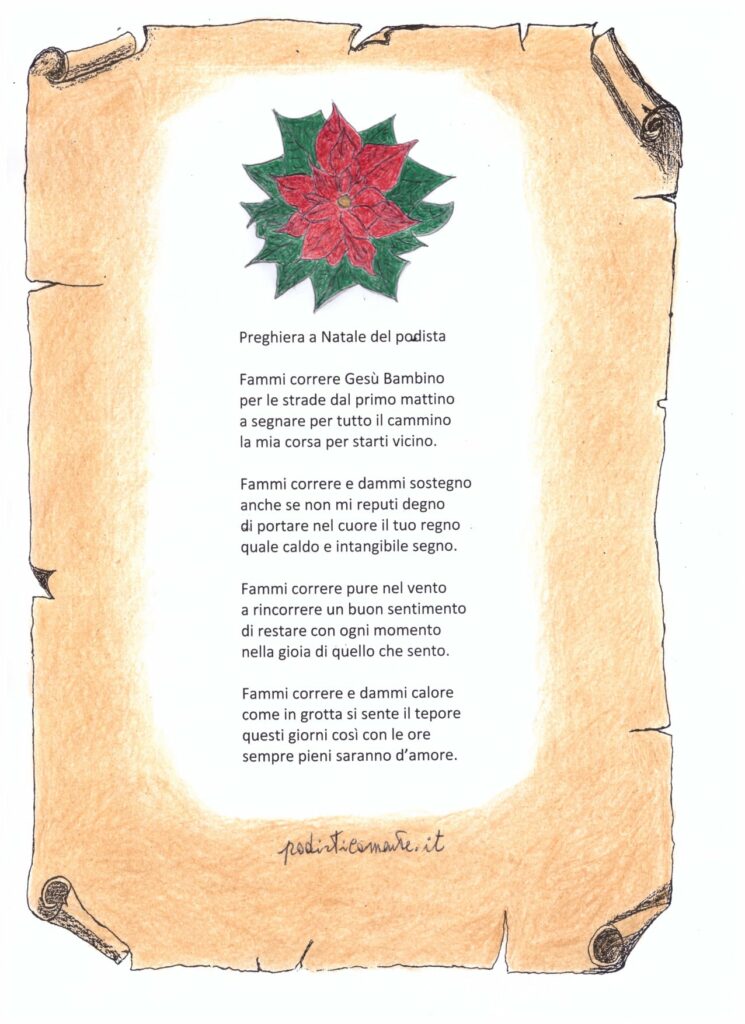 Preghiera a Natale del podista
Fammi correre Gesù Bambino
per le strade dal primo mattino
a segnare per tutto il cammino
la mia corsa per starti vicino.
Fammi correre e dammi sostegno
anche se non mi reputi degno
di portare nel cuore il tuo regno
quale caldo e intangibile segno.
Fammi correre pure nel vento
a rincorrere un buon sentimento
di restare con ogni momento
nella gioia di quello che sento.
Fammi correre e dammi calore
come in grotta si sente il tepore
questi giorni così con le ore
sempre pieni saranno d'amore.
podisticamente.it